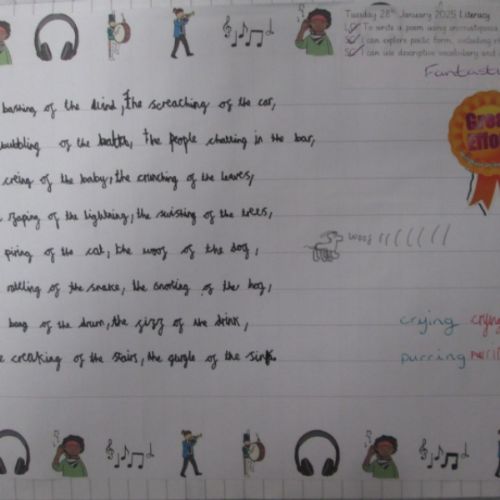 Tuesday 28th January 2025 Literacy
LO To write a poem using onomatopoeia
SC I can explore poetic form, including
SC I can use descriptive vocabulary and
Fantast
bashing of the blind, the screaching of the car,
bubbling of the bath, the people chatting in the bar,
creing of the baby, the crunching of the leaves,
zaping of the lightning, the swisting of the trees,
piring of the cat, the woof of the dog,
woof
rattling of the snake, the snorting of the hog,
bang of the drum, the fizz of the drink,
creaking of the stairs, the gurgle of the sink.
Great
Effo
crying crying
purring